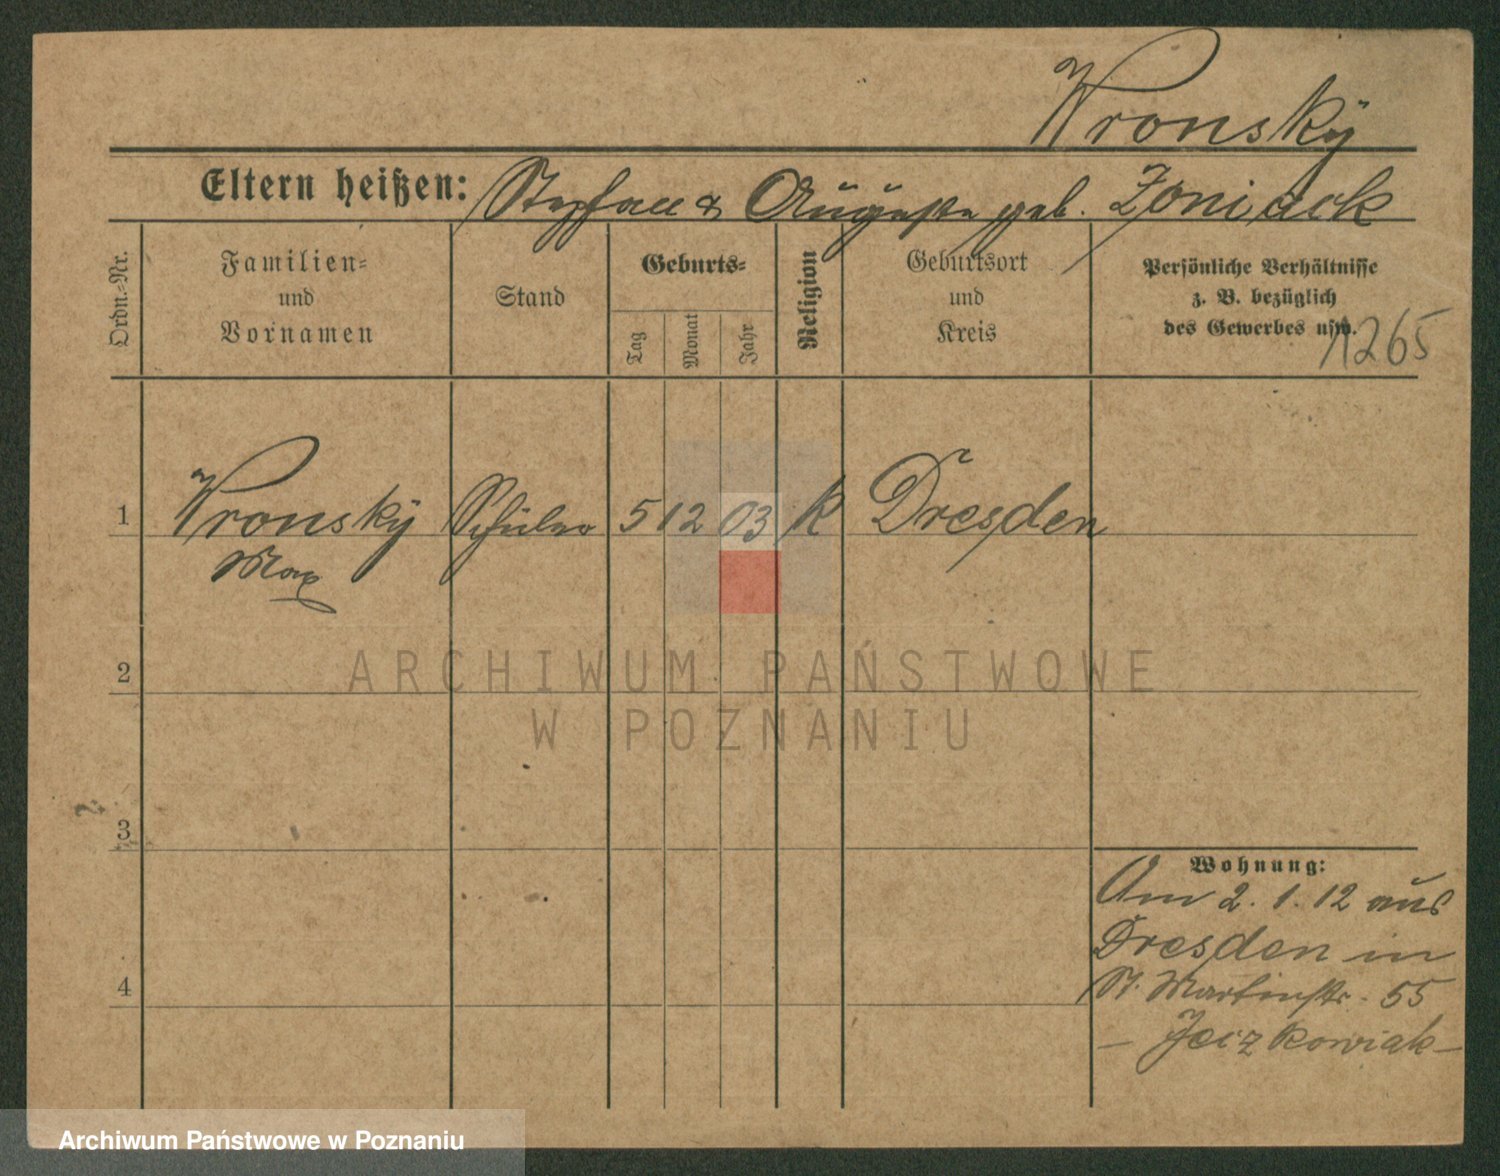 Wronsky
Eltern heißen: Stephan & Auguste geb. Zoniack
Ordn.-Nr.
Familien-
und
Vornamen
Stand
Geburts-
Tag
Monat
Jahr
Religion
Geburtsort
und
Kreis
Persönliche Verhältnisse
z. B. bezüglich
des Gewerbes usw.
1265
1 Wronsky Schüler 5 12 03 K Dresden
Max
2
ARCHIWUM PAŃSTWOWE
W POZNANIU
3
Wohnung:
Am 2. 1. 12 aus
Dresden in
4
St. Martinstr. 55
— Jeczkowiak —
Archiwum Państwowe w Poznaniu